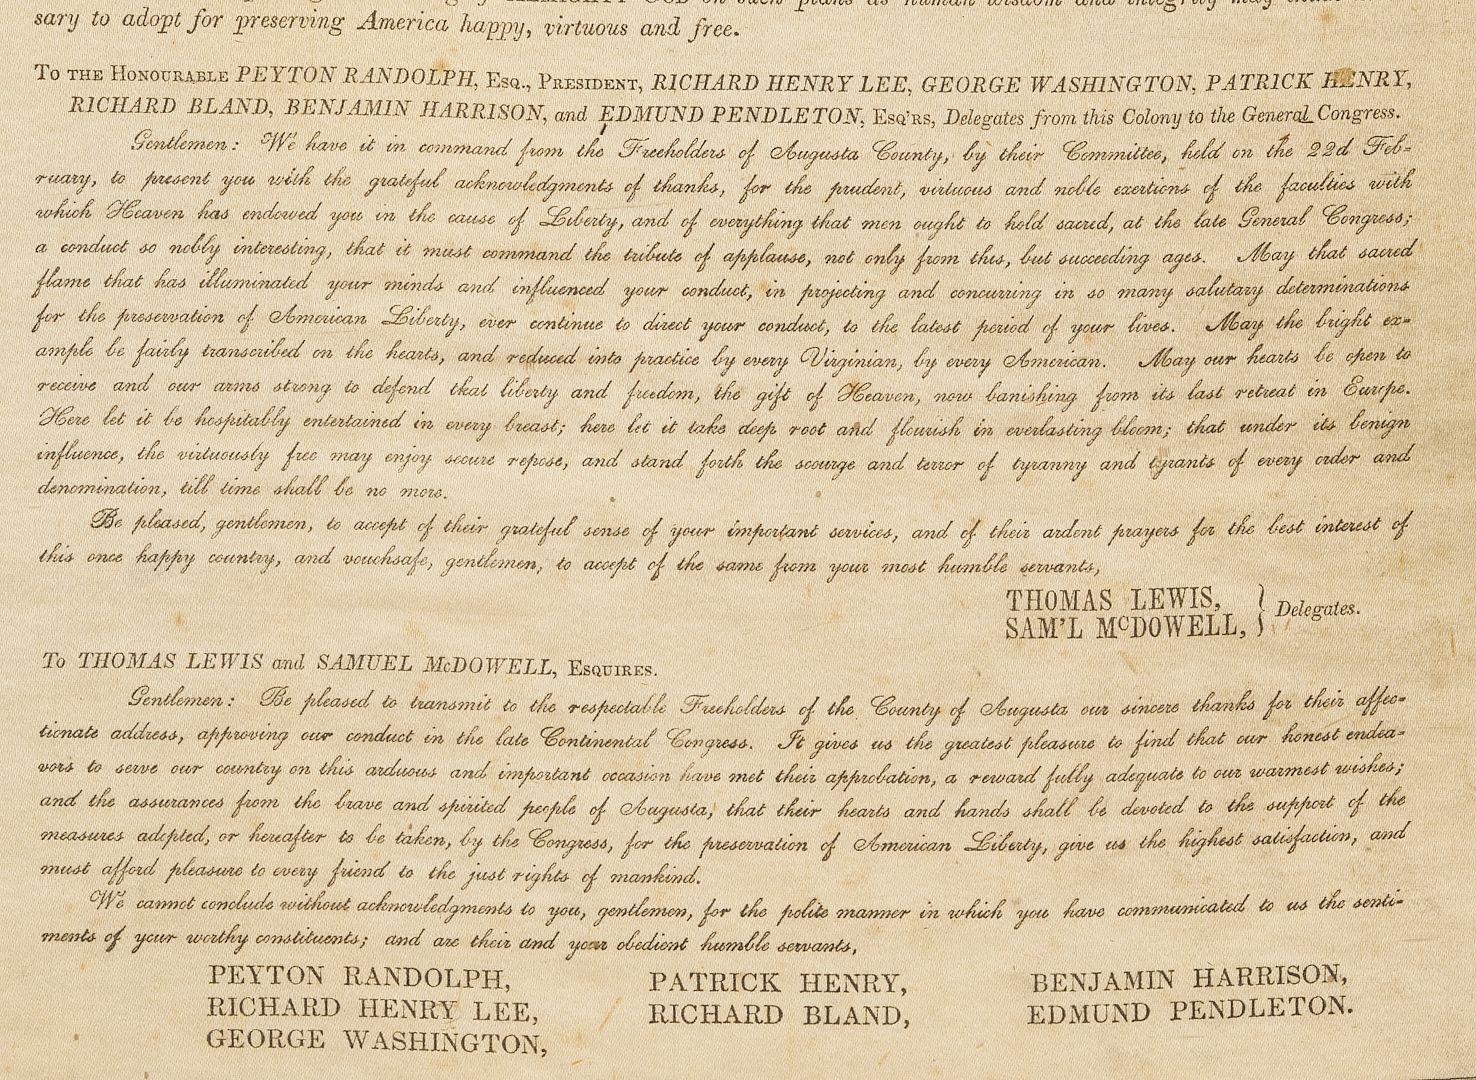 ALMIGHTY GOD on such plans as human wisdom and integrity may
sary to adopt for preserving America happy, virtuous and free.
To the Honourable PEYTON RANDOLPH, Esq., President, RICHARD HENRY LEE, GEORGE WASHINGTON, PATRICK HENRY,
RICHARD BLAND, BENJAMIN HARRISON, and EDMUND PENDLETON, Esq'rs, Delegates from this Colony to the General Congress.
Gentlemen: We have it in command from the Freeholders of Augusta County, by their Committee, held on the 22d Feb-
ruary, to present you with the grateful acknowledgments of thanks, for the prudent, virtuous and noble exertions of the faculties with
which Heaven has endowed you in the cause of Liberty, and of everything that men ought to hold sacred, at the late General Congress;
a conduct so nobly interesting, that it must command the tribute of applause, not only from this, but succeeding ages. May that sacred
flame that has illuminated your minds and influenced your conduct, in projecting and concurring in so many salutary determinations
for the preservation of American Liberty, ever continue to direct your conduct, to the latest period of your lives. May the bright ex-
ample be fairly transcribed on the hearts, and reduced into practice by every Virginian, by every American. May our hearts be open to
receive and our arms strong to defend tkat liberty and freedom, the gift of Heaven, now banishing from its last retreat in Europe.
Here let it be hospitably entertained in every breast; here let it take deep root and flourish in everlasting bloom; that under its benign
influence, the virtuously free may enjoy secure repose, and stand forth the scourge and terror of tyranny and tyrants of every order and
denomination, till time shall be no more.
Be pleased, gentlemen, to accept of their grateful sense of your important services, and of their ardent prayers for the best interest of
this once happy country, and vouchsafe, gentlemen, to accept of the same from your most humble servants,
THOMAS LEWIS,
SAM'L McDOWELL, } Delegates.
To THOMAS LEWIS and SAMUEL McDOWELL, Esquires.
Gentlemen: Be pleased to transmit to the respectable Freeholders of the County of Augusta our sincere thanks for their affec-
tionate address, approving our conduct in the late Continental Congress. It gives us the greatest pleasure to find that our honest endea-
vors to serve our country on this arduous and important occasion have met their approbation, a reward fully adequate to our warmest wishes;
and the assurances from the brave and spirited people of Augusta, that their hearts and hands shall be devoted to the support of the
measures adopted, or hereafter to be taken, by the Congress, for the preservation of American Liberty, give us the highest satisfaction, and
must afford pleasure to every friend to the just rights of mankind.
We cannot conclude without acknowledgments to you, gentlemen, for the polite manner in which you have communicated to us the senti-
ments of your worthy constituents; and are their and your obedient humble servants,
PEYTON RANDOLPH, PATRICK HENRY, BENJAMIN HARRISON,
RICHARD HENRY LEE, RICHARD BLAND, EDMUND PENDLETON.
GEORGE WASHINGTON,